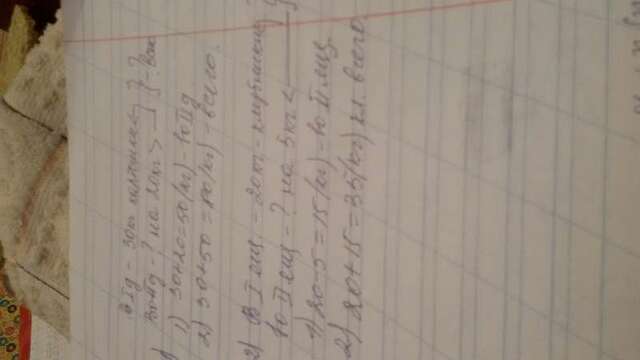 В I д - 30 кг картошки
Во II д - ? на 20 кг > } - ? Всего
1) 30+20=50(кг) - во II д
2) 30+50=80(кг) - всего.
2) В I ящ. - 20 кг - клубники
Во II ящ - ? на 5 кг <
1) 20-5=15(кг) - во II ящ.
2) 20+15=35(кг) кл. всего.